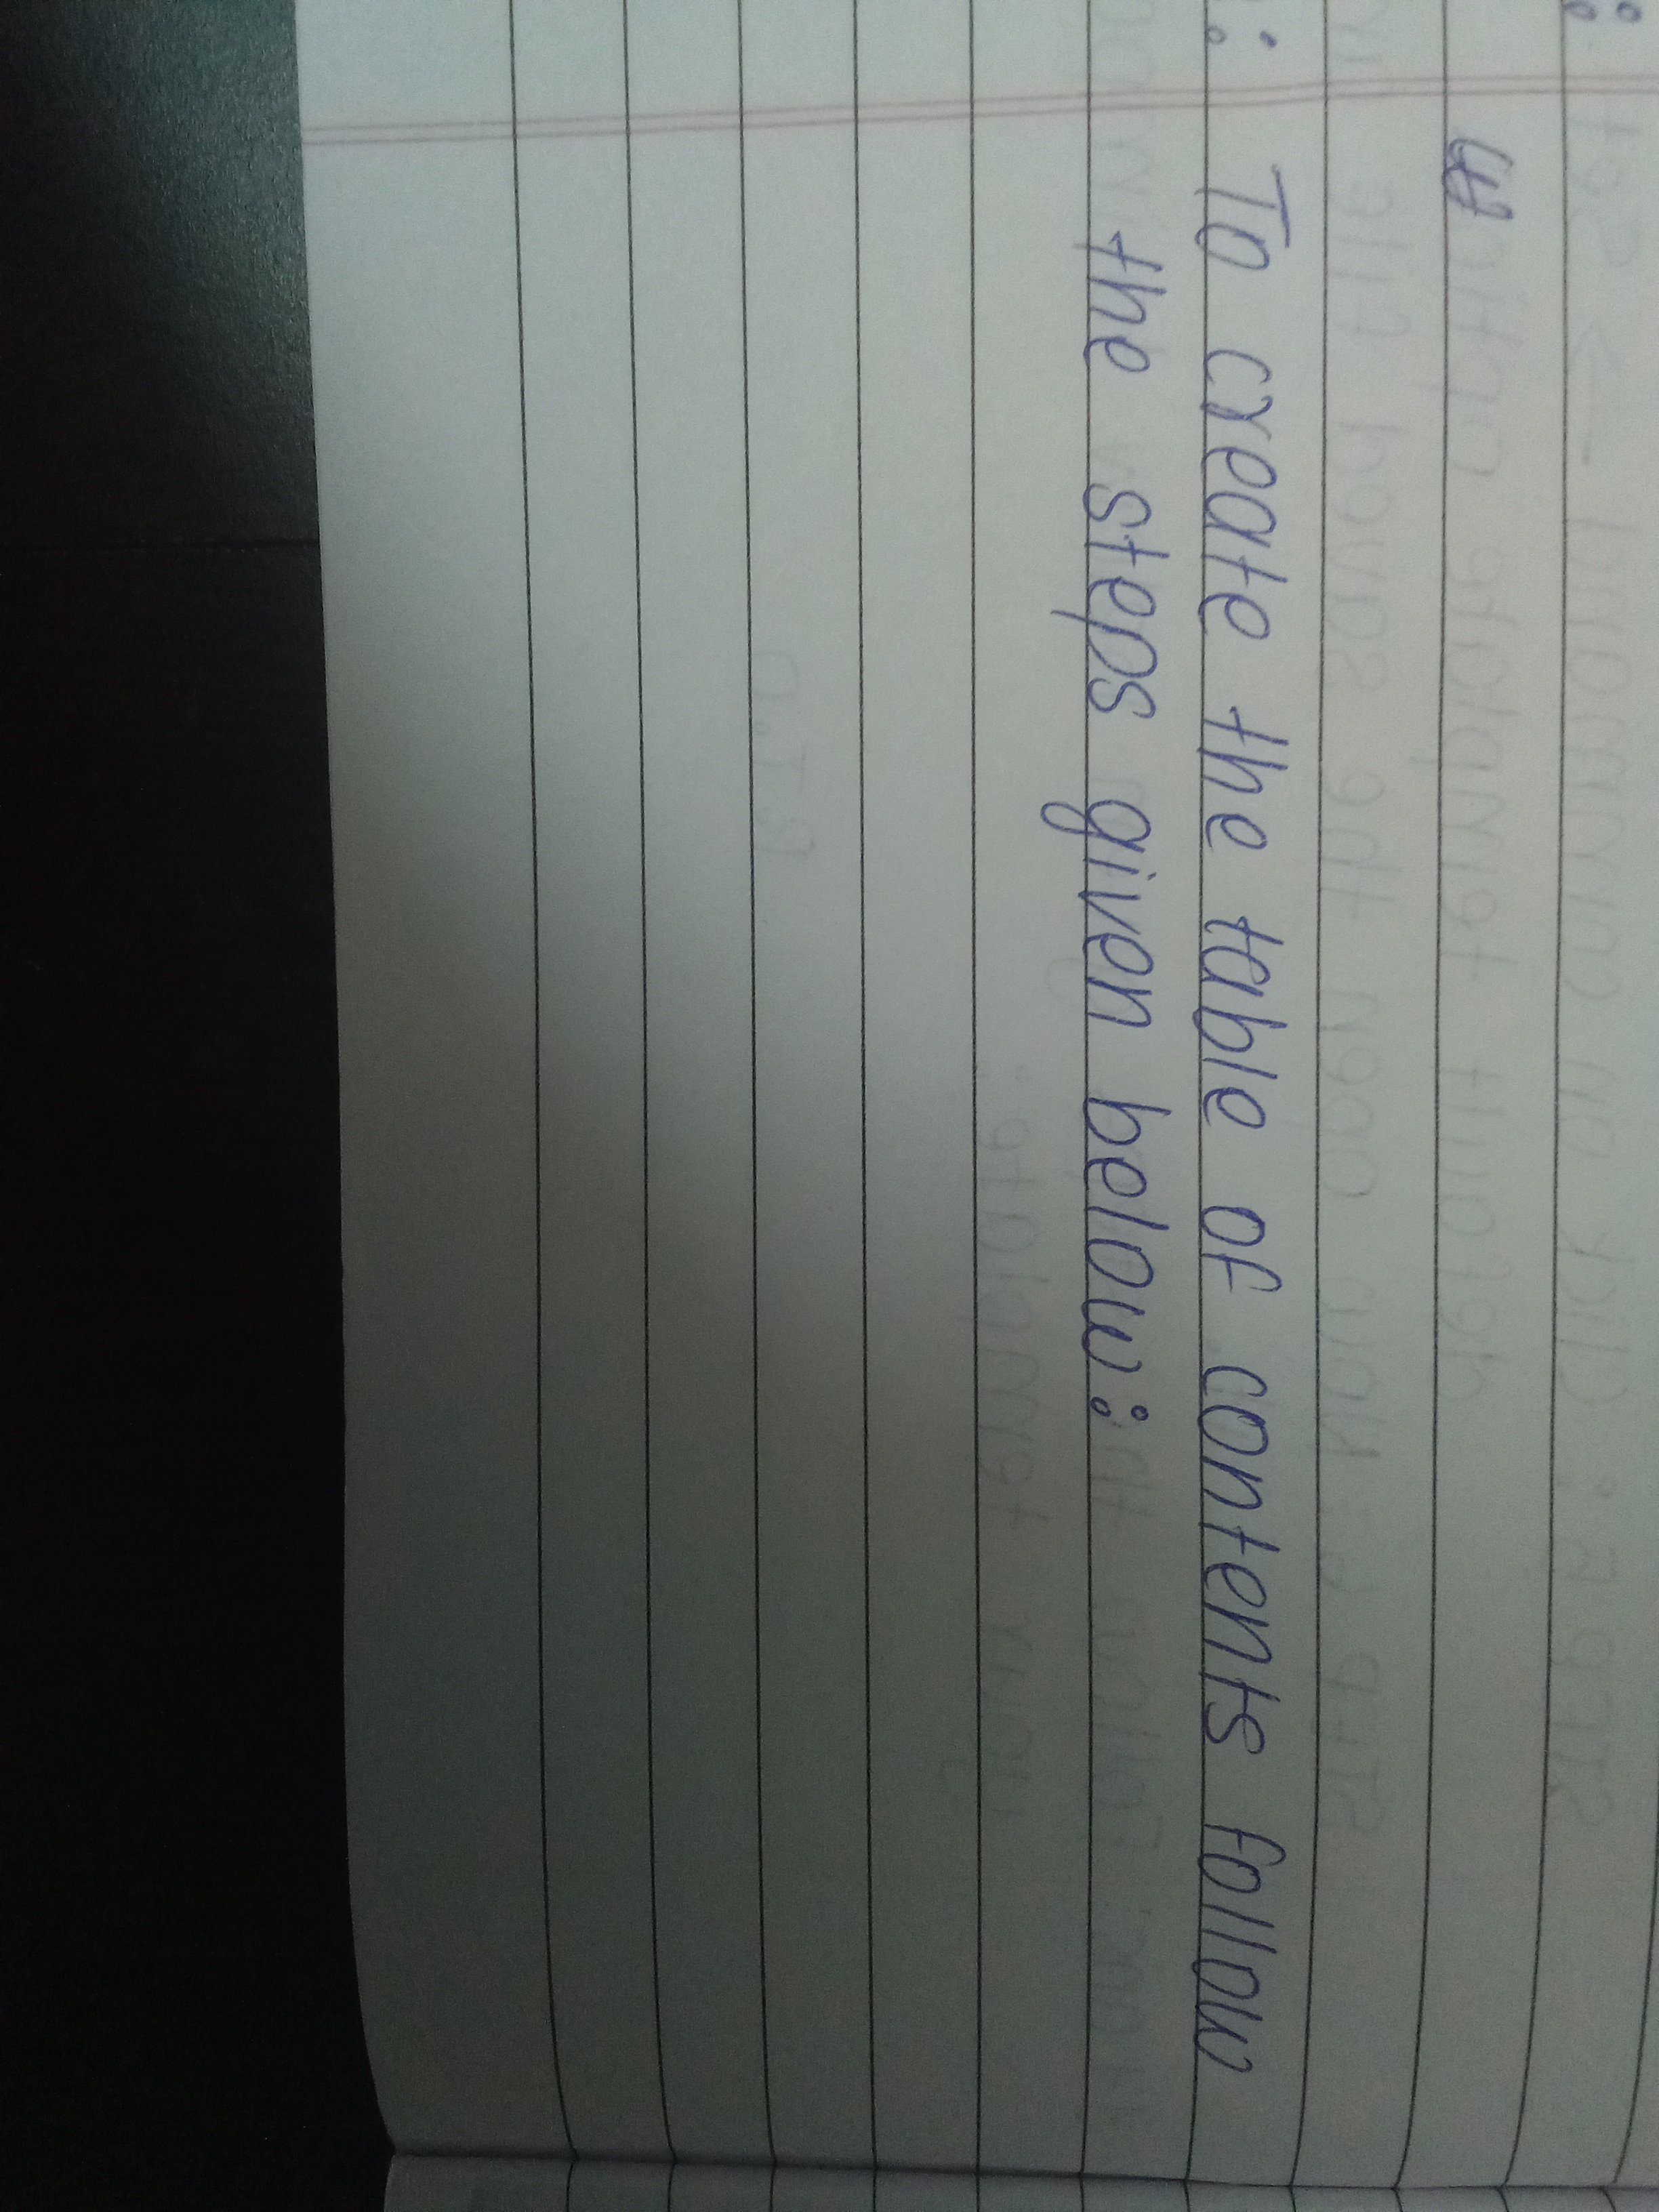 To create the table of contents follow
the steps given below: